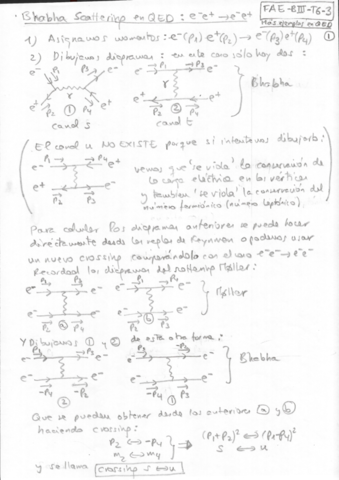 FAE-BIII-T6-3
Más ejemplos en QED
①
· Bhabha Scattering en QED : e⁻e⁺ → e⁻e⁺
1) Asignamos momentos: e⁻(p₁) e⁺(p₂) → e⁻(p₃) e⁺(p₄)
2) Dibujamos diagramas: en este caso sólo hay dos:
e⁻ p₁ p₃ e⁻ e⁻ p₁ p₃ e⁻
γ Bhabha
e⁺ p₂ ① p₄ e⁺ e⁺ p₂ ② p₄ e⁺
canal s canal t
El canal u NO EXISTE porque si intentamos dibujarlo:
e⁻ p₁ p₄ e⁺
e⁺ p₂ p₃ e⁻
vemos que 'se viola' la conservación de
la carga eléctrica en los vértices
y también 'se viola' la conservación del
número fermiónico (número leptónico).
Para calcular los diagramas anteriores se puede hacer
directamente desde las reglas de Feynman o podemos usar
un nuevo crossing comparándolo con el caso e⁻e⁻ → e⁻e⁻
Recordad los diagramas del scattering Möller:
e⁻ p₁ p₃ e⁻ e⁻ p₁ p₄ e⁻
Möller
e⁻ p₂ ⓐ p₄ e⁻ e⁻ p₂ ⓑ p₃ e⁻
Y Dibujamos ① y ② de esta otra forma:
e⁻ p₁ p₃ e⁻ e⁻ p₁ -p₂ e⁻
Bhabha
e⁻ -p₄ -p₂ e⁻ e⁻ -p₄ p₃ e⁻
② ①
Que se pueden obtener desde los anteriores ⓐ y ⓑ
haciendo crossing:
p₂ ↔ -p₄ ⇒ (p₁+p₂)² ↔ (p₁-p₄)²
m₂ ↔ m₄ s ↔ u
y se llama crossing s ↔ u